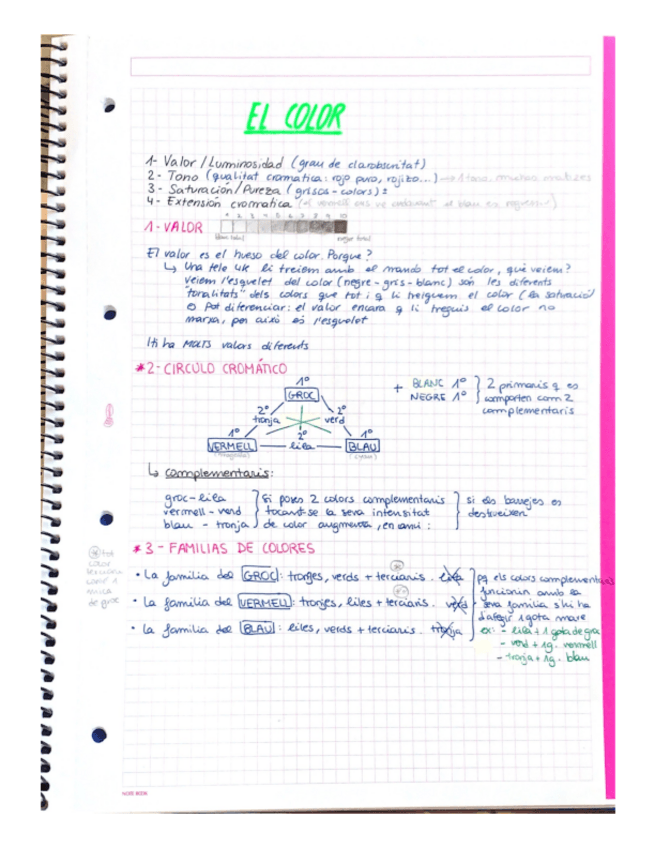 EL COLOR
1- Valor/Luminosidad (grau de clarobscuritat)
2- Tono (qualitat cromatica: rojo puro, rojizo...) → 1 tono, muchos matices
3- Saturación/Pureza (grisos - colors)
4- Extensión cromatica
1- VALOR
1 2 3 4 5 6 7 8 9 10
blanc total negre total
El valor es el hueso del color. Porque?
↳ Una tele 4k li treiem amb el mando tot el color, què veiem?
veiem l'esquelet del color (negre-gris-blanc) són les diferents
"tonalitats" dels colors que tot i q li treiguem el color (la saturació)
Pot diferenciar: el valor encara q li treguis el color no
marxa, per això és l'esquelet
Hi ha MOLTS valors diferents
*2- CIRCULO CROMÁTICO
1º
GROC
2º 2º
tronja verd
1º 2º 1º
VERMELL — lila — BLAU
(magenta) (cyan)
+ BLANC 1º
NEGRE 1º
2 primaris q es
comporten com 2
complementaris
↳ complementaris:
groc - lila
vermell - verd
blau - tronja
si poses 2 colors complementaris
tocant-se la seva intensitat
de color augmenta, en canvi:
si els barreges es
destrueixen
*3 - FAMILIAS DE COLORES
• La familia del GROC: tronjes, verds + terciaris. lila
• La familia del VERMELL: tronjes, liles + terciaris. verd
• la familia del BLAU: liles, verds + terciaris. tronja
pq els colors complementaris
funcionin amb la
seva familia s'hi ha
d'afegir 1 gota mare
ex: - lila + 1 gota de groc
- verd + 1g. vermell
- tronja + 1g. blau
tot
color
de groc
NOTE BOOK